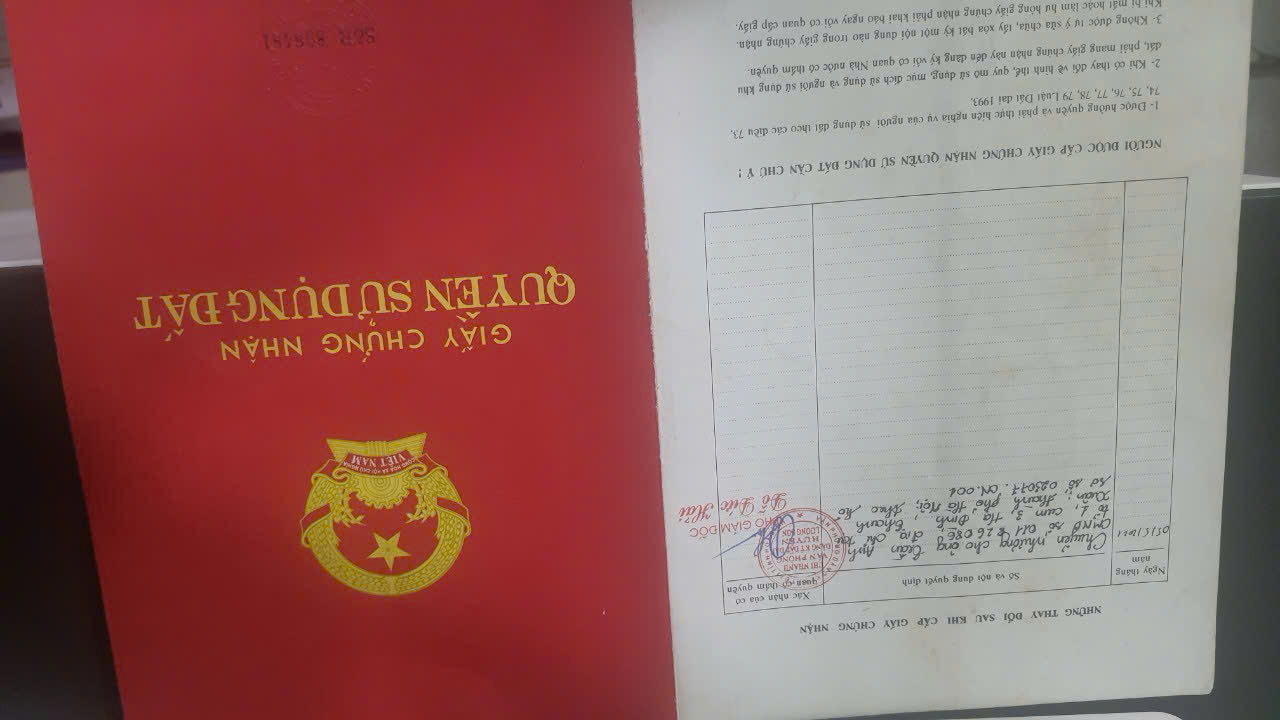 GIẤY CHỨNG NHẬN
QUYỀN SỬ DỤNG ĐẤT
CỘNG HÒA XÃ HỘI CHỦ NGHĨA
VIỆT NAM
NHỮNG THAY ĐỔI SAU KHI CẤP GIẤY CHỨNG NHẬN
Ngày tháng
năm
Số và nội dung quyết định
Xác nhận của cơ
quan có thẩm quyền
Chuyển nhượng cho ông Trần Anh
CMND số 011 826086, địa chỉ
tổ 1, cụm 3 Hạ Đình, Thanh
Xuân, thành phố Hà Nội, theo hồ
sơ số 025077.CN.001
PHÓ GIÁM ĐỐC
Đỗ Đức Hải
NGƯỜI ĐƯỢC CẤP GIẤY CHỨNG NHẬN QUYỀN SỬ DỤNG ĐẤT CẦN CHÚ Ý !
1- Được hưởng quyền và phải thực hiện nghĩa vụ của người sử dụng đất theo các điều 73,
74, 75, 76, 77, 78, 79 Luật Đất đai 1993.
2- Khi có thay đổi về hình thể, quy mô sử dụng, mục đích sử dụng và người sử dụng khu
đất, phải mang giấy chứng nhận này đến đăng ký với cơ quan Nhà nước có thẩm quyền.
3- Không được tự ý sửa chữa, tẩy xóa bất kỳ một nội dung nào trong giấy chứng nhận.
Khi bị mất hoặc làm hư hỏng giấy chứng nhận phải khai báo ngay với cơ quan cấp giấy.